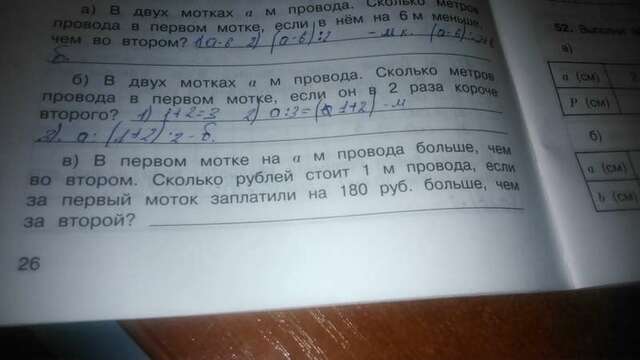 а) В двух мотках а м провода. Сколько метров
провода в первом мотке, если в нём на 6 м меньше,
чем во втором? 1) а-6 2) (а-6):2 - м к. (а-6):2+6
б.
б) В двух мотках а м провода. Сколько метров
провода в первом мотке, если он в 2 раза короче
второго? 1) 1+2=3 2) а:3=(а 1+2) - м
3). а:(1+2)·2-б.
в) В первом мотке на а м провода больше, чем
во втором. Сколько рублей стоит 1 м провода, если
за первый моток заплатили на 180 руб. больше, чем
за второй?
26
52.
а)
a (см)
P (см)
б)
a (см)
b (см)